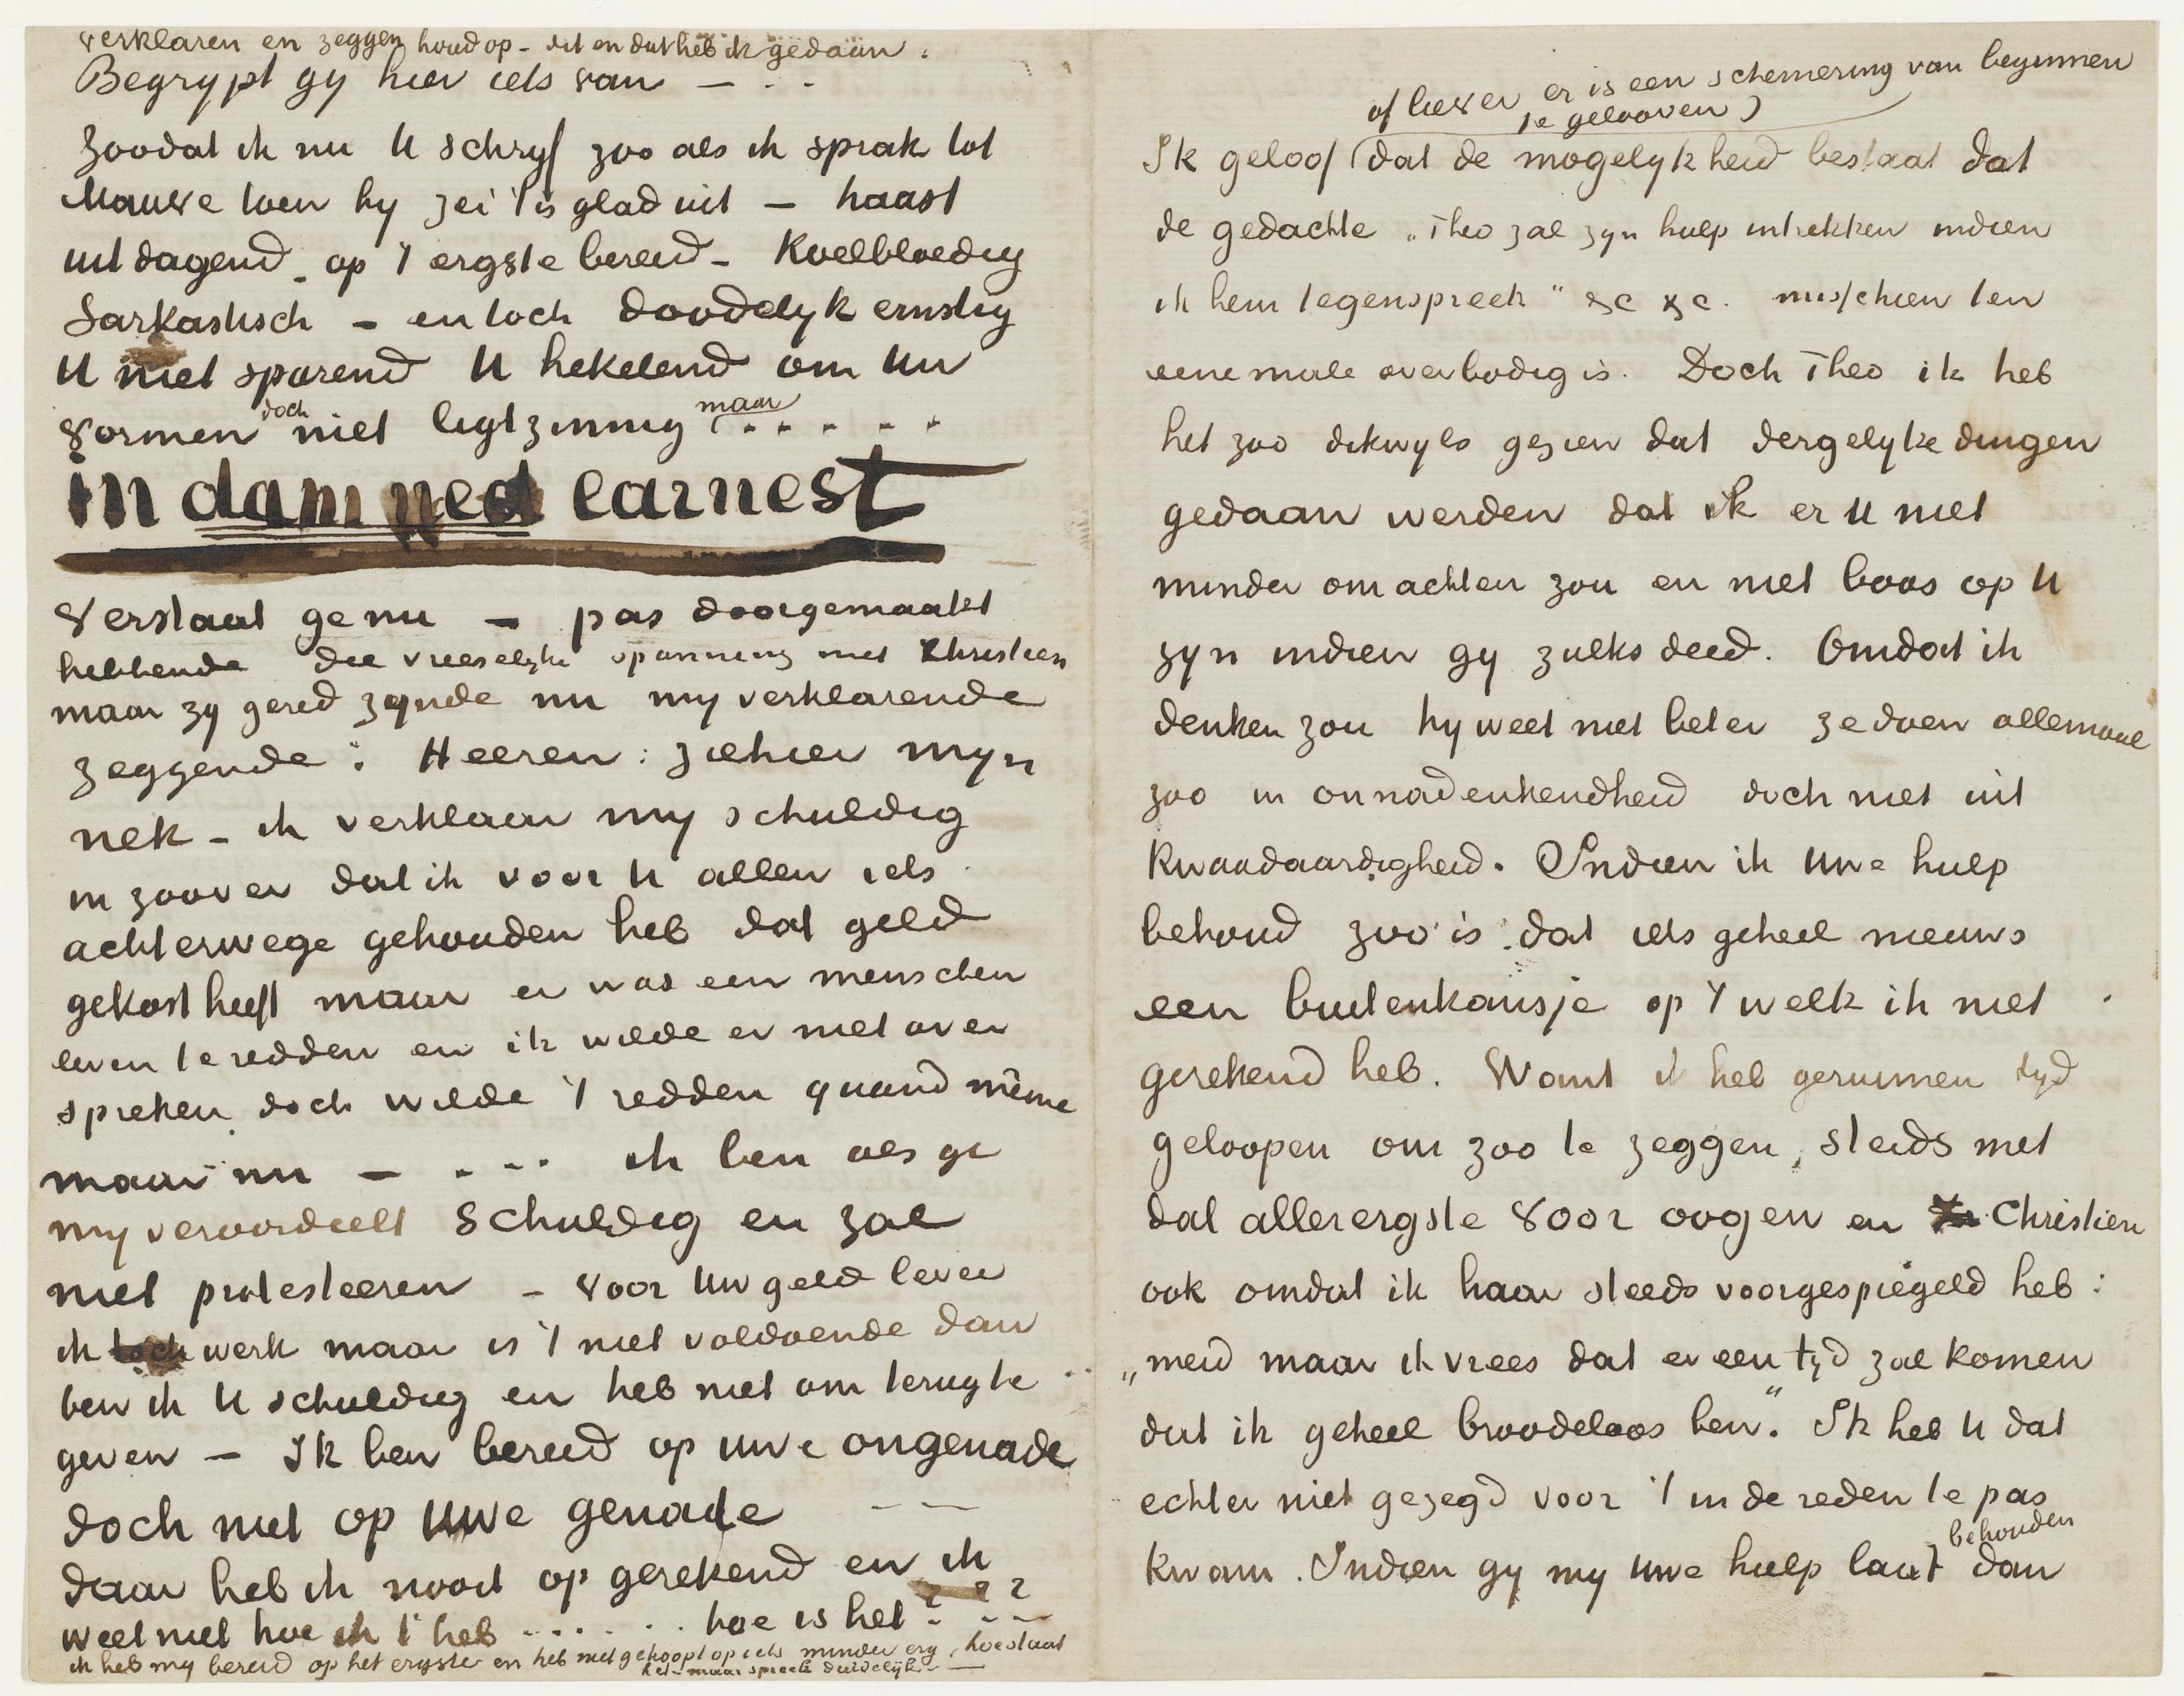 verklaren en zeggen houd op – dit en dat heb ik gedaan.
Begrypt gy hier iets van – . .
zoodat ik nu U schryf zoo als ik sprak tot
Mauve toen hy zei 't is glad uit – haast
uitdagend – op 't ergste bereid – Koelbloedig
Sarkastisch – en toch doodelyk ernstig
U niet sparend U hekelend om Uw
vormen doch niet ligtzinnig maar . . . . .
in damned earnest
Verstaat ge nu – pas doorgemaakt
hebbende die vreeselyke spanning met Christien
maar zy gered zynde nu my verklarende
zeggende : Heeren : ziehier myn
nek – ik verklaar my schuldig
in zoover dat ik voor U allen iets
achterwege gehouden heb dat geld
gekost heeft maar er was een menschen
leven te redden en ik wilde er niet over
spreken doch wilde 't redden quand même
maar nu – . . . . ik ben als ge
my veroordeelt schuldig en zal
niet protesteeren – voor Uw geld lever
ik toch werk maar is 't niet voldoende dan
ben ik U schuldig en heb niet om terug te
geven – Ik ben bereid op uwe ongenade
doch niet op Uwe genade — —
daar heb ik nooit op gerekend en ik
weet niet hoe ik 't heb . . . . . . hoe is het ? ? ?
ik heb my bereid op het ergste en heb niet gehoopt op iets minder erg, hoe staat
het – maar spreek duidelijk – —
of liever er is een schemering van beginnen
te gelooven)
Ik geloof (dat de mogelykheid bestaat dat
de gedachte „Theo zal zyn hulp intrekken indien
ik hem tegenspreek" &c &c. misschien ten
eene male overbodig is. Doch Theo ik heb
het zoo dikwyls gezien dat dergelyke dingen
gedaan werden dat ik er U niet
minder om achten zou en niet boos op U
zyn indien gy zulks deed. Omdat ik
denken zou hy weet niet beter ze doen allemaal
zoo in onnadenkendheid doch niet uit
Kwaadaardigheid. Indien ik Uwe hulp
behoud zoo is dat iets geheel nieuws
een buitenkansje op 't welk ik niet
gerekend heb. Want ik heb geruimen tyd
geloopen om zoo te zeggen, steeds met
dat allerergste voor oogen en Christien
ook omdat ik haar steeds voorgespiegeld heb :
„meid maar ik vrees dat er een tyd zal komen
dat ik geheel broodeloos ben". Ik heb U dat
echter niet gezegd voor 't in de reden te pas
kwam. Indien gy my uwe hulp laat behouden dan